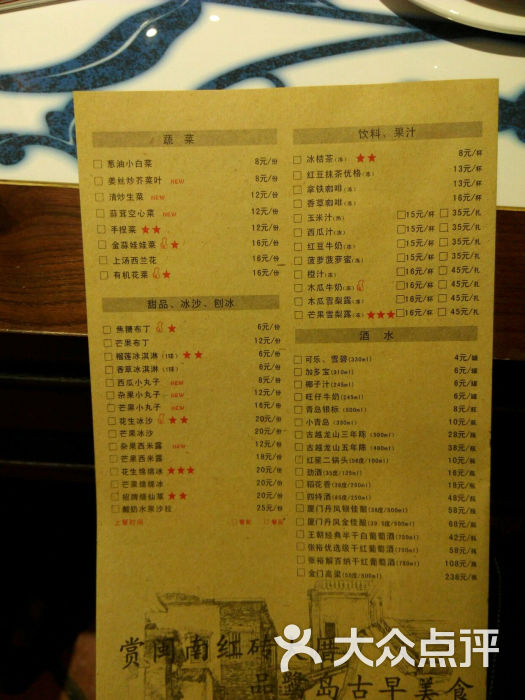 蔬 菜
葱油小白菜 8元/份
姜丝炒芥菜叶 NEW 8元/份
清炒生菜 NEW 12元/份
蒜茸空心菜 NEW 12元/份
手捏菜 ★★ 12元/份
金蒜娃娃菜 ★ 16元/份
上汤西兰花 16元/份
有机花菜 ★ 16元/份
甜品、冰沙、刨冰
焦糖布丁 ★ 6元/份
芒果布丁 12元/份
榴莲冰淇淋(1球) ★★ 6元/份
香草冰淇淋(1球) 6元/份
西瓜小丸子 NEW 8元/份
杂果小丸子 NEW 12元/份
芒果小丸子 NEW 16元/份
花生冰沙 ★★ 20元/份
芒果冰沙 20元/份
杂果西米露 NEW 12元/份
芒果西米露 18元/份
花生绵绵冰 ★★★ 20元/份
芒果绵绵冰 20元/份
招牌烧仙草 ★★ 20元/份
酸奶水果沙拉 25元/份
上餐时间
饮料、果汁
冰桔茶(冻) ★★ 8元/杯
红豆抹茶优格(冻) 13元/杯
拿铁咖啡(冻) 13元/杯
香草咖啡(冻) 16元/杯
玉米汁(热) 15元/杯 35元/扎
西瓜汁(冻) 15元/杯 35元/扎
红豆牛奶(冻) 15元/杯 35元/扎
菠萝菠萝蜜(冻) 15元/杯 35元/扎
橙汁(冻) 16元/杯 45元/扎
木瓜牛奶(冻) 16元/杯 45元/扎
木瓜雪梨露(冻) 16元/杯 45元/扎
芒果雪梨露(冻) ★★★ 16元/杯 45元/扎
酒 水
可乐、雪碧(330ml) 4元/罐
加多宝(310ml) 6元/罐
椰子汁(245ml) 6元/罐
旺仔牛奶(245ml) 6元/罐
青岛银标(500ml) 8元/瓶
小青岛(300ml) 10元/瓶
古越龙山三年陈(500ml) 28元/瓶
古越龙山五年陈(480ml) 38元/瓶
红星二锅头(56度/100ml) 10元/瓶
劲酒(35度/125ml) 16元/瓶
稻花香(38度/250ml) 18元/瓶
四特酒(45度/250ml) 48元/瓶
厦门丹凤银佳酿(38度/500ml) 58元/瓶
厦门丹凤金佳酿(39.5度/500ml) 68元/瓶
王朝经典半干白葡萄酒(750ml) 42元/瓶
张裕优选级干红葡萄酒(750ml) 58元/瓶
张裕解百纳干红葡萄酒(750ml) 108元/瓶
金门高粱(58度/600ml) 238元/瓶
赏闽南红砖
品鹭岛古早美食
大众点评